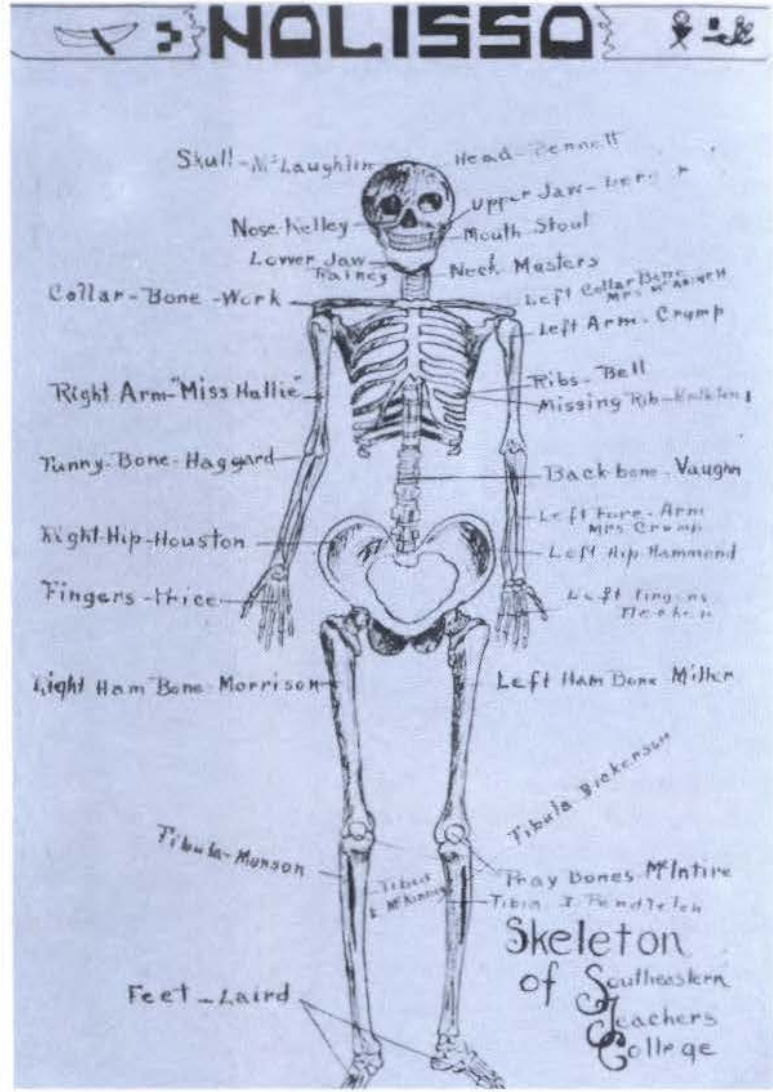 HOLISSO
Skull-McLaughlin
Head-Bennett
Upper Jaw-
Nose-Kelley
Mouth Stout
Lower Jaw
Rainey
Neck Masters
Collar-Bone-Work
Left Collar Bone
Left Arm-Crump
Right Arm-"Miss Hallie"
Ribs-Bell
Missing Rib-
Funny-Bone-Haggard
Back-bone-Vaughn
Left Fore-Arm
Mrs Crump
Right-Hip-Houston
Left Hip-Hammond
Fingers-Price
Left Fingers
Right Ham Bone-Morrison
Left Ham Bone Miller
Tibula Dickerson
Tibula-Munson
Pray Bones-McIntire
Tibia
& McKinney
Tibia. J. Pendleton
Feet-Laird
Skeleton
of Southeastern
Teachers
College